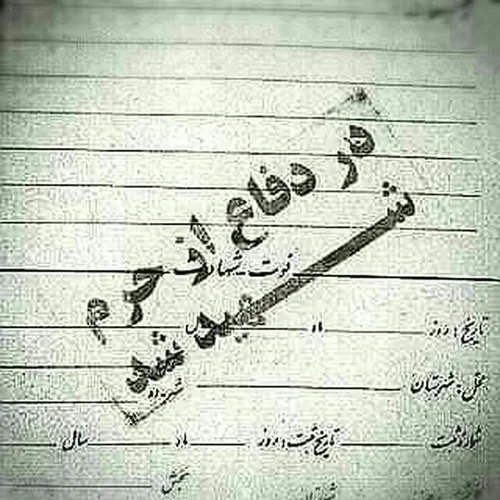 در دفاع از حرم
شهید شد
فوت - شهادت
تاریخ: روز ماه
محل: شهرستان
شماره ثبت تاریخ ثبت: روز ماه سال
بخش